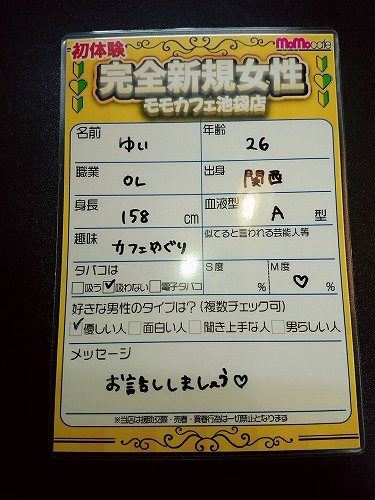 初体験
MoMocafe
完全新規女性
モモカフェ池袋店
名前 ゆい 年齢 26
職業 OL 出身 関西
身長 158 cm 血液型 A 型
趣味 カフェめぐり 似てると言われる芸能人等
タバコは S度 M度
□吸う ☑吸わない □電子タバコ % ♡ %
好きな男性のタイプは?(複数チェック可)
☑優しい人 □面白い人 □聞き上手な人 □男らしい人
メッセージ
お話ししましょう♡
※当店は援助交際・売春・買春行為は一切禁止となります